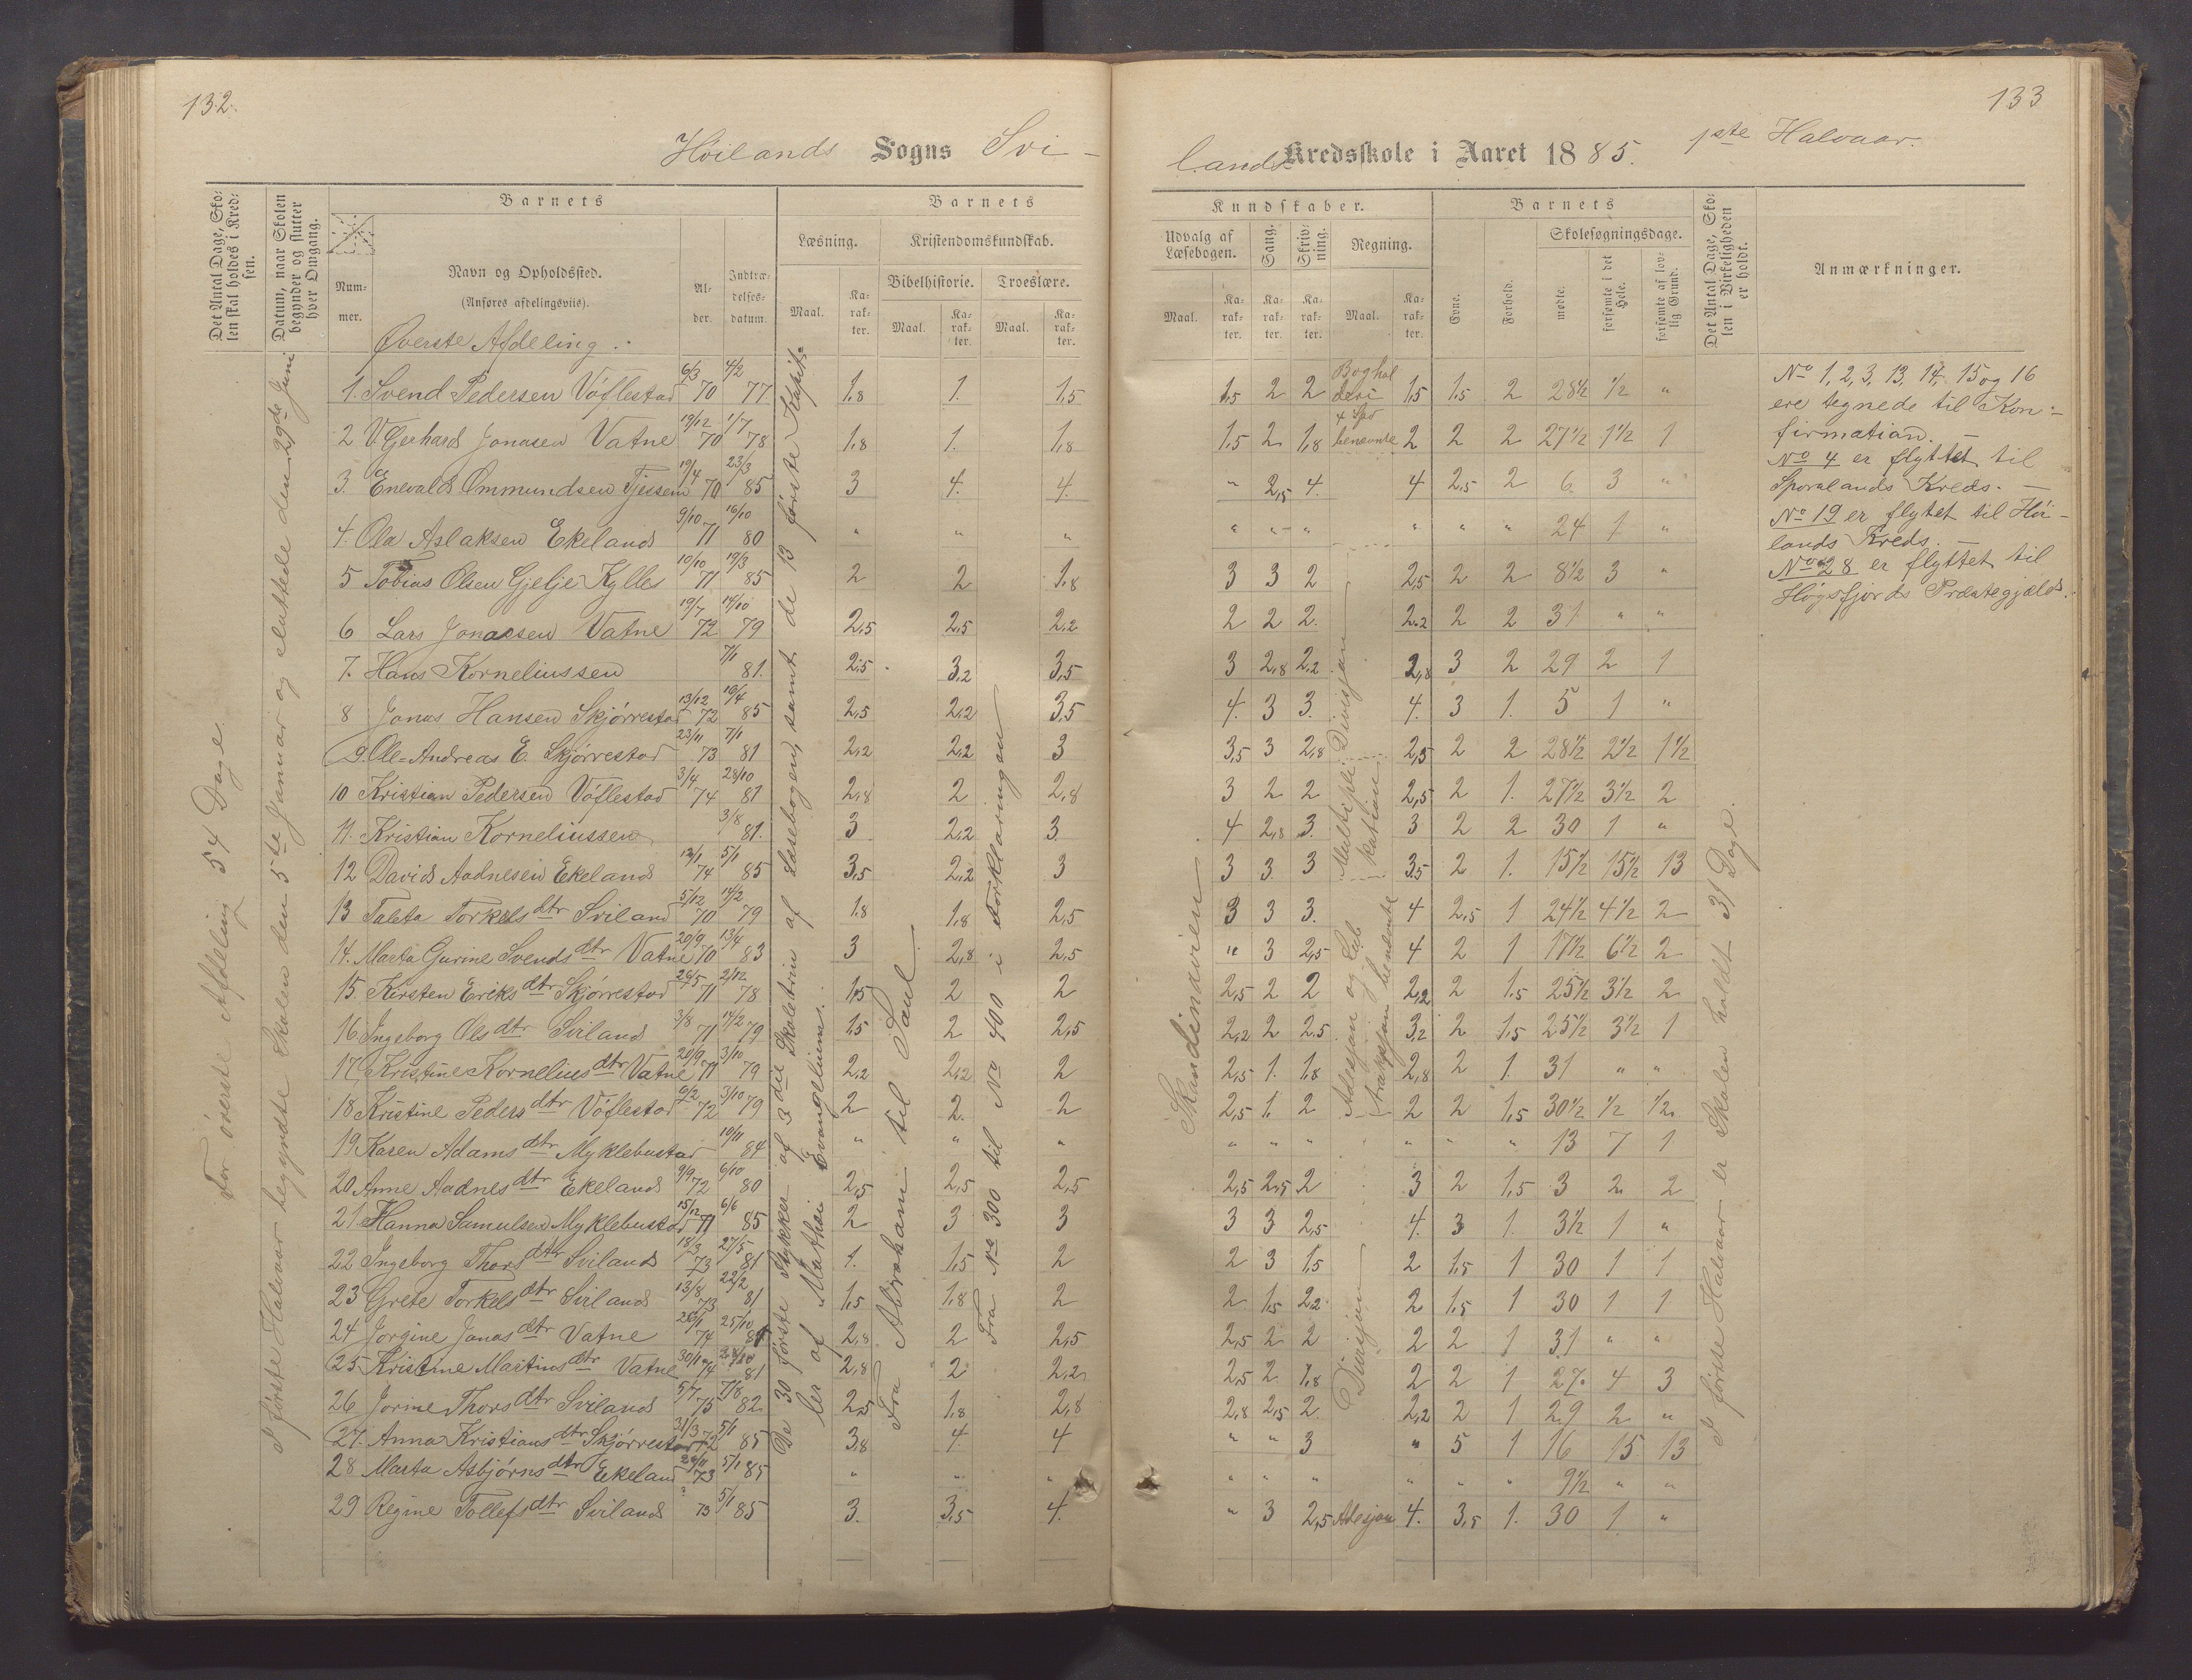 132.
133
Höilands Sogns Svi-
lands Kredsskole i Aaret 1885. 1ste Halvaar.
Det Antal Dage, Skolen skal holdes i Kredsen.
Datum, naar Skolen begynder og slutter hver Omgang.
Barnets
Nummer.
Navn og Opholdssted.
(Anføres afdelingsviis).
Alder.
Indtrædelsesdatum.
Barnets
Læsning.
Maal.
Karakter.
Kristendomskundskab.
Bibelhistorie.
Maal.
Karakter.
Troeslære.
Maal.
Karakter.
Kundskaber.
Udvalg af Læsebogen.
Maal.
Karakter.
Sang.
Karakter.
Skrivning.
Karakter.
Regning.
Maal.
Karakter.
Barnets
Evne.
Forhold.
Skolesøgningsdage.
mødte.
forsømte i det Hele.
forsømte af lovlig Grund.
Det Antal Dage, Skolen i Virkeligheden er holdt.
Anmærkninger.
Øverste Afdeling.
1. Svend Pedersen Vöflestad 6/3 70 4/2 77 1,8 1. 1,5 1,5 2 2 1,5 1,5 2 28½ ½ "
2 V. Gerhard Jonasen Vatne 19/12 70 1/7 78 1,8 1. 1,8 1,5 2 1,8 2 2 2 27½ 1½ 1
3. Enevald Ommundsen Tjessem 19/4 70 23/3 85 3 4. 4. " 2,5 4. 4 2,5 2 6 3 "
4. Ola Aslaksen Ekeland 9/10 71 16/10 80 " " " " " " " " " 24 1 "
5 Tobias Olsen Gjelje Kylles 10/10 71 19/3 85 2 2 1,8 3 3 2 2,5 2 2 8½ 3 "
6 Lars Jonassen Vatne 19/7 72 14/10 79 2,5 2,5 2,2 2 2 2. 2,2 2 2 31 " "
7. Hans Korneliussen 7/1 81. 2,5 3,2 3,5 3 2,8 2,2 2,8 3 2 29 2 1
8 Jonas Hansen Skjörrestad 13/12 72 10/4 85 2,5 2,2 3,5 4. 3 3. 4. 3 1. 5 1 "
9. Ole-Andreas E. Skjörrestad 23/11 73 7/1 81 2,2 2,2 3 3,5 3 2,8 2,5 2 2 28½ 2½ 1½
10 Kristian Pedersen Vöflestad 3/4 74 28/10 81 2,8 2 2,8 3 2 2 2,5 2 1. 27½ 3½ 2
11. Kristian Korneliussen 3/8 81. 3 2,2 3 4 2,8 3. 3 2 2 30 1 "
12 David Aadnesen Ekeland 12/1 74 5/1 85 3,5 2,2 3 3 3. 3 3,5 2 1. 15½ 15½ 13
13 Taleta Torkels dtr Sviland 5/12 70 14/2 79 1,8 1,8 2,5 3 3 3. 4 2,5 1 24½ 4½ 2
14. Marta Gurine Svends dtr Vatne 20/9 70 13/4 83 3 2,8 2,5 " 3 2,5 4 2 1 17½ 6½ 2
15. Kirsten Eriks dtr Skjörrestad 26/5 71 2/12 78 1,5 2 2 2,5 2 2 2,2 2 1,5 25½ 3½ 2
16 Ingeborg Ols dtr Sviland 3/8 71 14/2 79 1,5 2 2,5 2,2 2 2,5 3,2 2 1,5 25½ 3½ 1
17 Kristine Kornelius dtr Vatne 20/9 71 3/10 79 2,2 2,2 2 2,5 1. 1,8 2,8 2 1. 31 " "
18 Kristine Peders dtr Vöflestad 6/2 72 3/10 79 2 2. 2 2,5 1. 2 2 2 1,5 30½ ½ ½
19 Karen Adams dtr Myklebustad 10/11 84 " " " " " " " " " 13 7 1
20 Anne Aadnes dtr Ekeland 9/9 72 6/10 80 2,5 2,5 2,5 2,5 2,5 2 3 2 1,5 3 2 2
21 Hanna Samulsen Myklebustad 15/12 71 6/6 85 2 3 3 3 3 2,5 4. 3 1 3½ 1 "
22 Ingeborg Thors dtr Sviland 18/3 73 27/5 81 1. 1,5 2 2 3 1,5 2 1,5 1 30 1 1
23 Grete Torkels dtr Sviland 13/8 73 22/2 81 1,5 1,8 2 2 1,5 2,2 2 1,5 1 30 1 1
24 Jorgine Jonas dtr Vatne 26/1 74 25/10 81 2,8 2 2,5 2,5 2 2 2 2 1 31 " "
25 Kristine Martins dtr Vatne 30/11 74 81 2,8 2 2,2 2,5 2 1,8 2 2 1 27 4 3
26 Jorine Thors dtr Sviland 5/7 75 7/8 82 2,5 1,8 2,8 2,8 2,5 2 2,2 2 1 29 2 "
27. Anna Kristians dtr Skjörrestad 31/3 72 5/1 85 3,8 4 4 " " 3 " 5 1 16 15 13
28 Marta Asbjørns dtr Ekeland 73 5/1 85 " " " " " " " " " 9½ " "
29 Regine Tollefs dtr Sviland ? 73 5/1 85 3. 3,5 4. " 3 2,5 Adesjon 4. 3,5 1. 30 1 "
For øverste Afdeling 54 Dage.
I første Halvaar begyndte Skolen den 5te Januar og sluttede den 29de Juni
De 30 første Stykker af 3die Skoletrin af Læsebogen, samt de 13 første Kapit-
ler af Mathæi Evangelium.
Fra Abraham til Saul
Fra No 300 til No 400 i Forklaringen
Skandinavien.
Boghol
deri
4 Spo
benevnte
Divisjon
Multipli-
kation
Adesjon og Sub
traksjon benevnte
Divisjon
I første Halvaar er Skolen holdt 31 Dage.
No 1, 2, 3, 13, 14, 15 og 16
ere tegnede til Kon-
firmation. —
No 4 er flyttet til
Sporalands Kreds. —
No 19 er flytet til Höi-
lands Kreds. —
No 28 er flyttet til
Högsfjords Præstegjæld.